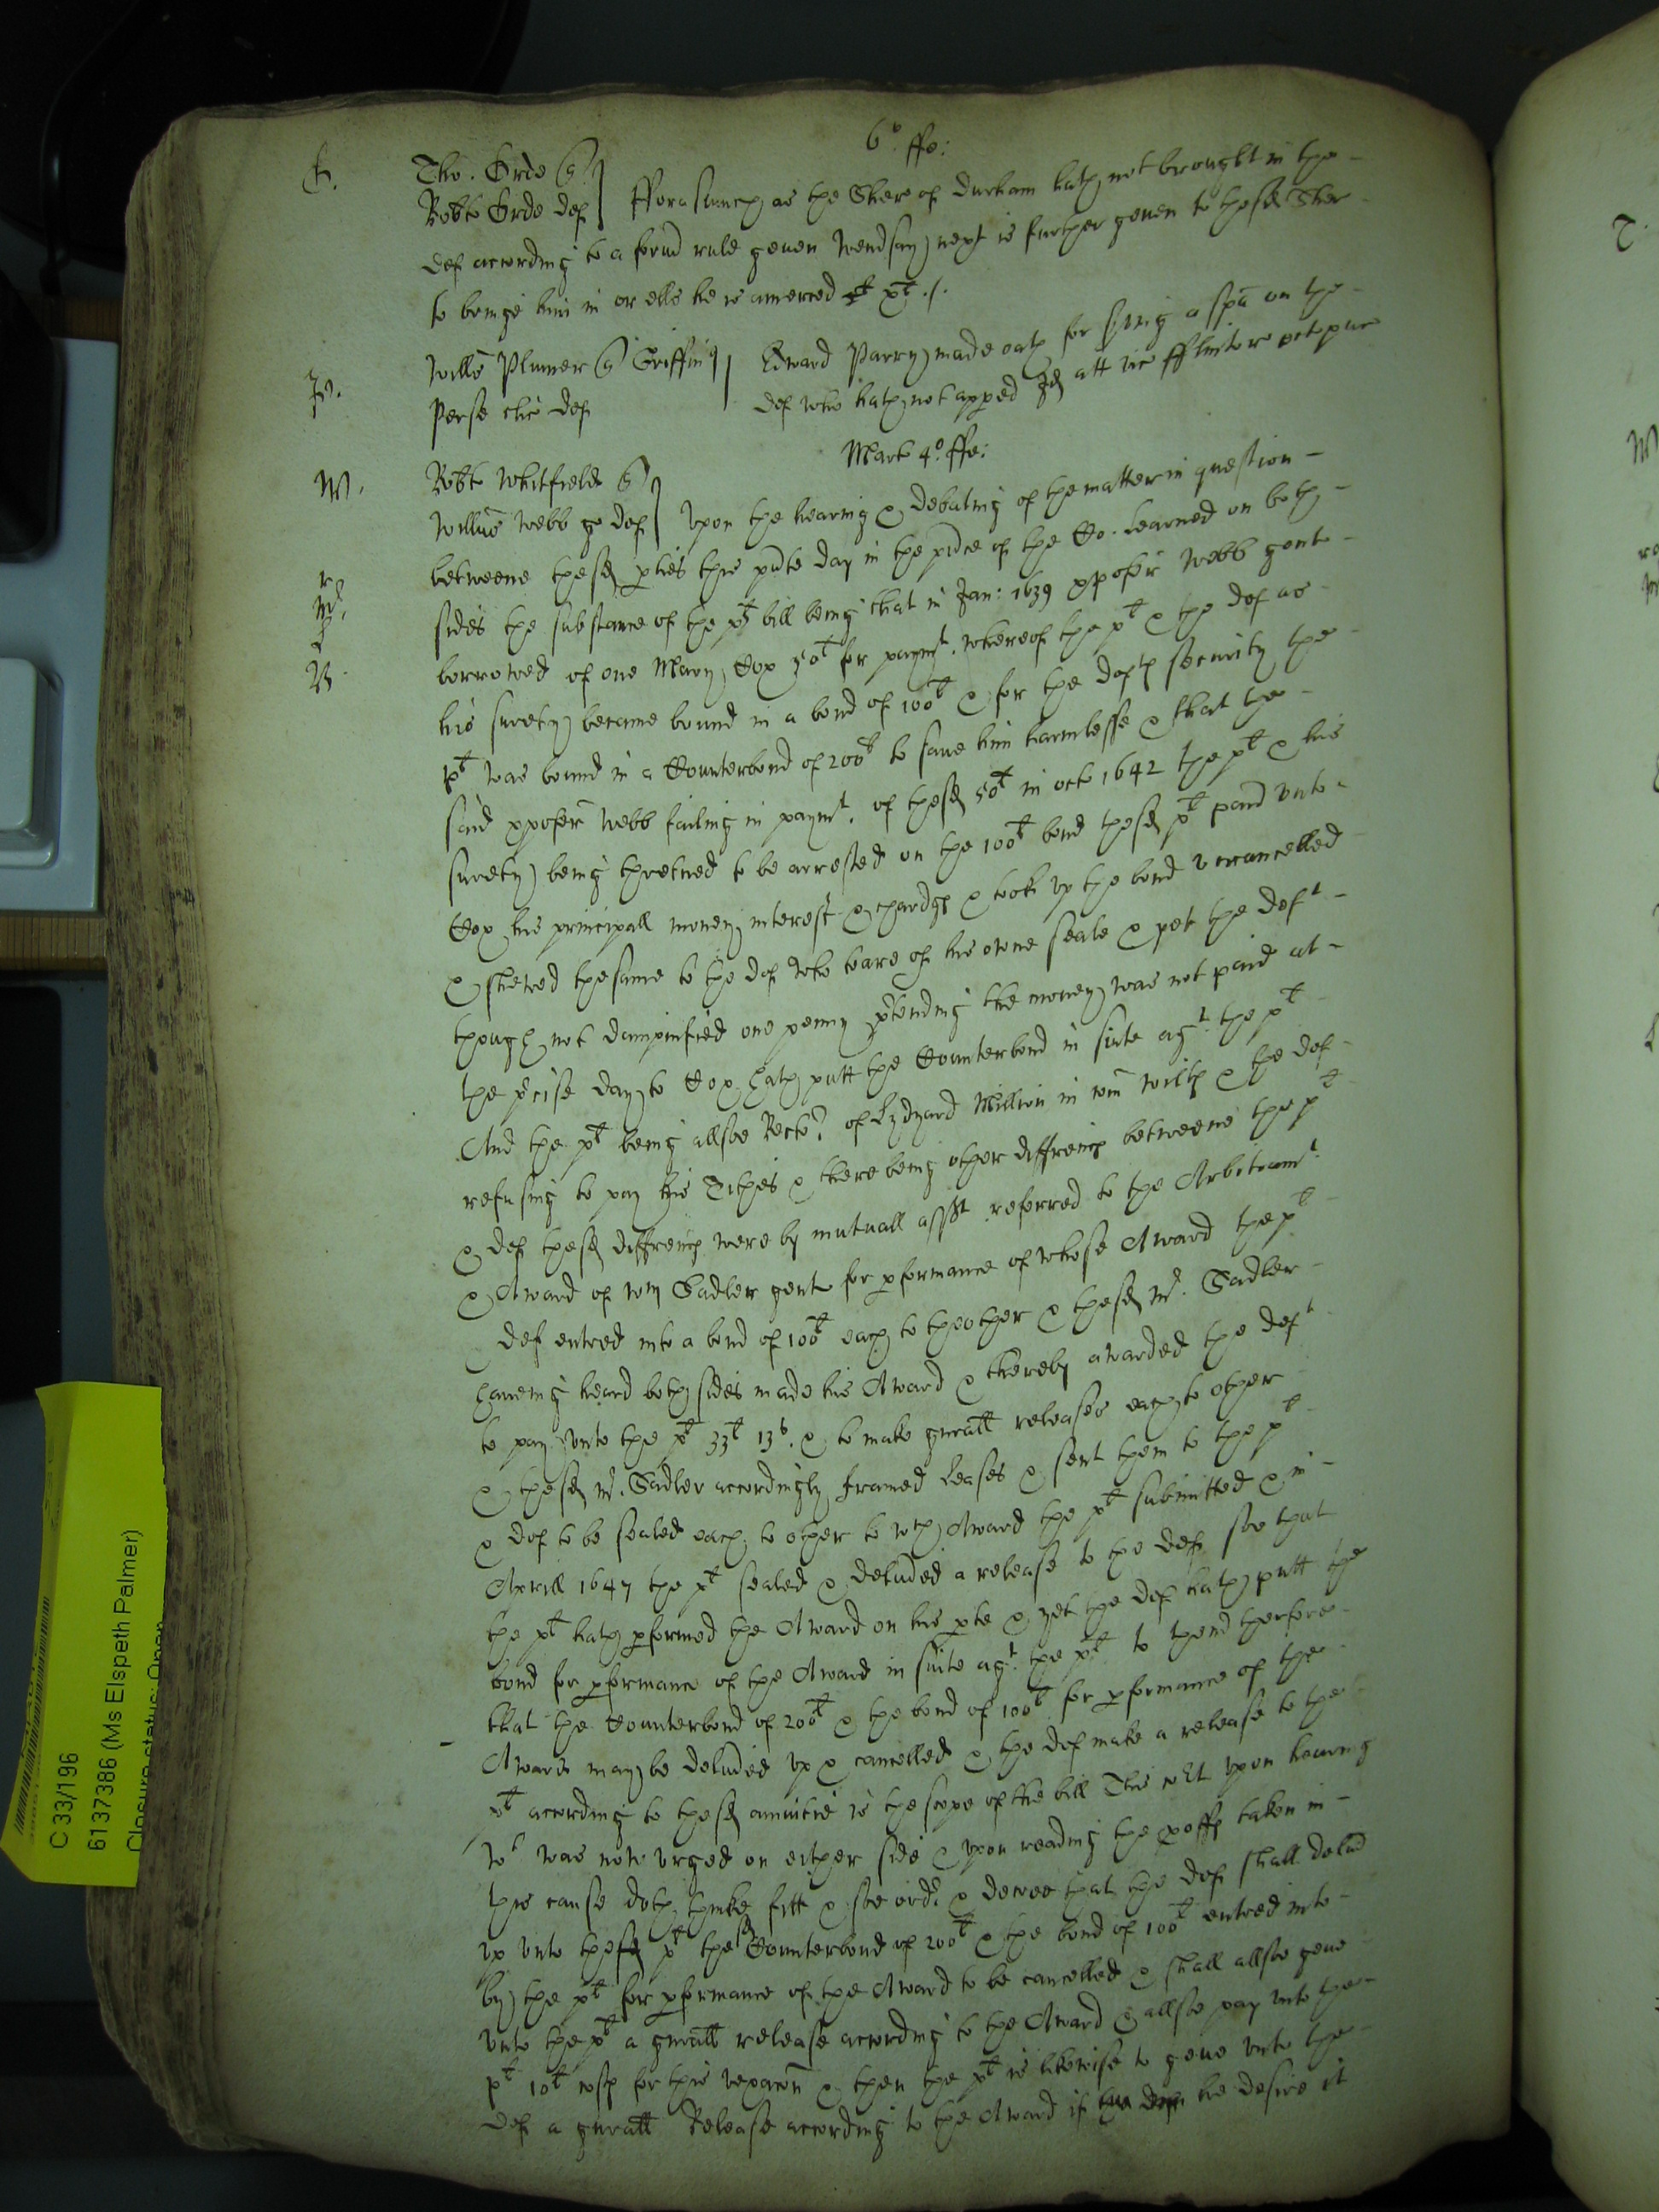 6o ffe:
Tho. Orde q
Robte Orde def
fforasmuch as the Shere of Durham hath not brought in the
def according to a formd rule geven wendsay next is further geven to the sd Sher
to bringe him in or ells he is amerced xl.
Willm Plumer q Griffin
Perse cler def
Edward Parry made oath for sving a spa on the
def who hath not appeed Jd att vic fflint re pet pue
Mart 4o ffe:
Robte Whitfield q
Willms Webb ge def
Upon the hearing & debating of the matter in question
betweene the sd pties this pnte day in the pnce of the Co. learned on both
sides the substance of the plts bill being that in Jan: 1639 Xpofer Webb gent
borrowed of one Mary Cox 50l for paymt. whereof the plt & the def as
his surety became bound in a bond of 100l & for the defts security the
plt was bound in a Counterbond of 200l to save him harmlesse & that the
said Xpofer Webb failing in paymt. of the sd 50l in octo 1642 the plt & his
surety being thretned to be arrested on the 100l bond the sd plt paid unto
Cox his principall money interest & chardgs & took up the bond uncancelled
& shewed the same to the def who teare of his owne seale & yet the deft
though not dampnified one penny ptending the money was not paid at
the pcise day to Cox hath putt the Counterbond in suite agt. the plt
And the plt being allsoe Rector of Lydyard Millicn in com wilts & the def
refusing to pay his Tithes & there being other diffrencs betweene the plt
& def the sd diffrencs were by mutuall asst referred to the Arbitramt.
& Award of Wm Sadler gent for pformance of whose Award the plt
& def entred into a bond of 100l each to the other & the sd Mr. Sadler
haveing heard both sides made his Award & thereby awarded the deft
to pay unto the plt 33l 13s. & to make gnrall releases each to other
& the sd Mr. Sadler accordingly framed leases & sent them to the plt
& def to be sealed each to other to wch Award the plt submitted & in
Aprill 1647 the plt sealed & delived a release to the def soe that
the plt hath pformed the Award on his pte & yet the def hath putt the
bond for pformance of the Award in suite agt. the plt to thend therfore
that the Counterbond of 200l & the bond of 100l for pformance of the
Award may be delived up & cancelled & the def make a release to the
plt according to the sd is the scope of the bill This Cort upon hearing
wt was now urged on either side & upon reading the pooffs taken in
this cause doth thinke fitt & soe order & decree that the def shall delivr
up unto the sd plt the sd Counterbond of 200l & the bond of 100l entred into
by the plt for pformance of the Award to be cancelled & shall allsoe geve
unto the plt a gnrall release according to the Award & allsoe pay unto the
plt 10l costs for this vexacon & then the plt is likewise to geve unto the
def a gnrall Release according to the Award if he desire it
C 33/196
6137386 (Ms Elspeth Palmer)
Closure status: Open